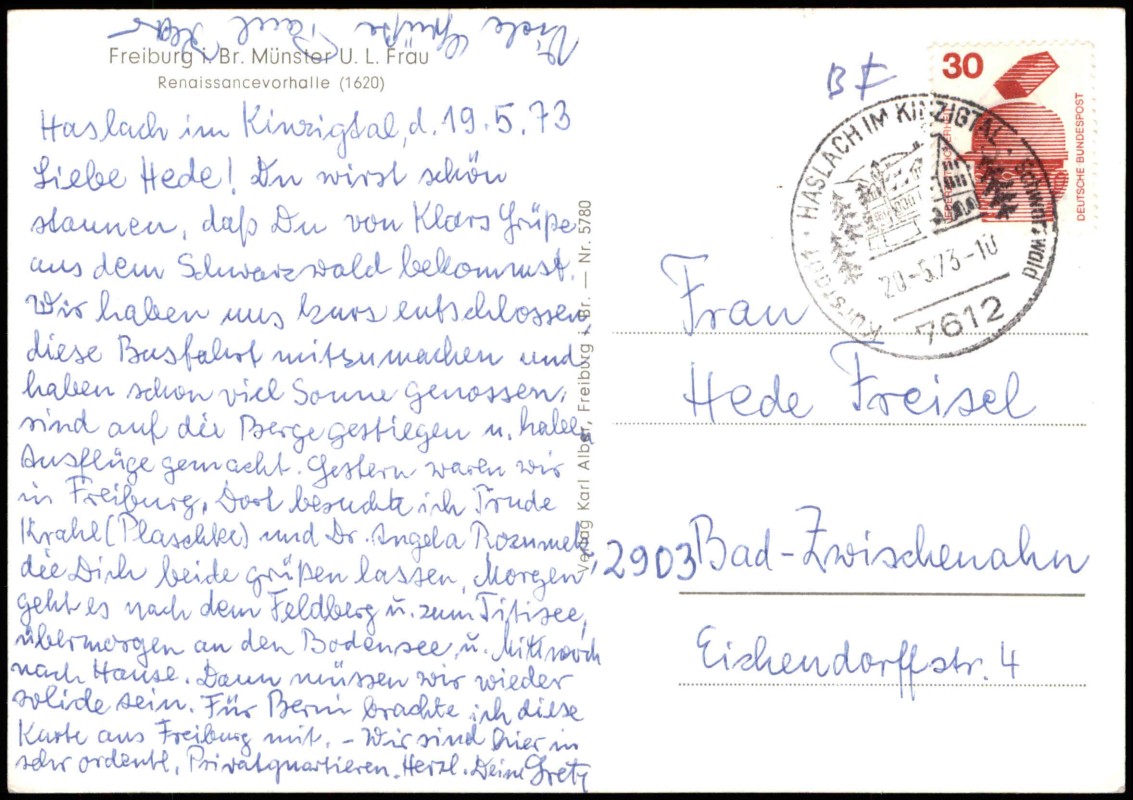 Viele Grüße Paul Klar
Freiburg i. Br. Münster U. L. Frau
Renaissancevorhalle (1620)
Haslach im Kinzigtal, d. 19.5.73
Liebe Hede! Du wirst schön
staunen, daß Du von Klars Grüße
aus dem Schwarzwald bekommst.
Wir haben uns kurz entschlossen
diese Busfahrt mitzumachen und
haben schon viel Sonne genossen,
sind auf die Berge gestiegen u. haben
Ausflüge gemacht. Gestern waren wir
in Freiburg. Dort besuchte ich Trude
Krahl (Plaschke) und Dr. Angela Rozumek,
die Dich beide grüßen lassen. Morgen
geht es nach dem Feldberg u. zum Titisee,
übermorgen an den Bodensee, u. Mittwoch
nach Hause. Dann müssen wir wieder
solide sein. Für Berni brachte ich diese
Karte aus Freiburg mit. - Wir sind hier in
sehr ordentl. Privatquartieren. Herzl. Deine Gretl
Verlag Karl Alber, Freiburg i. Br. — Nr. 5780
BF
30
DEUTSCHE BUNDESPOST
HASLACH IM KINZIGTAL · Schwarzwald
20.-5.73-10
7612
Frau
Hede Freisel
2903 Bad-Zwischenahn
Eichendorffstr. 4